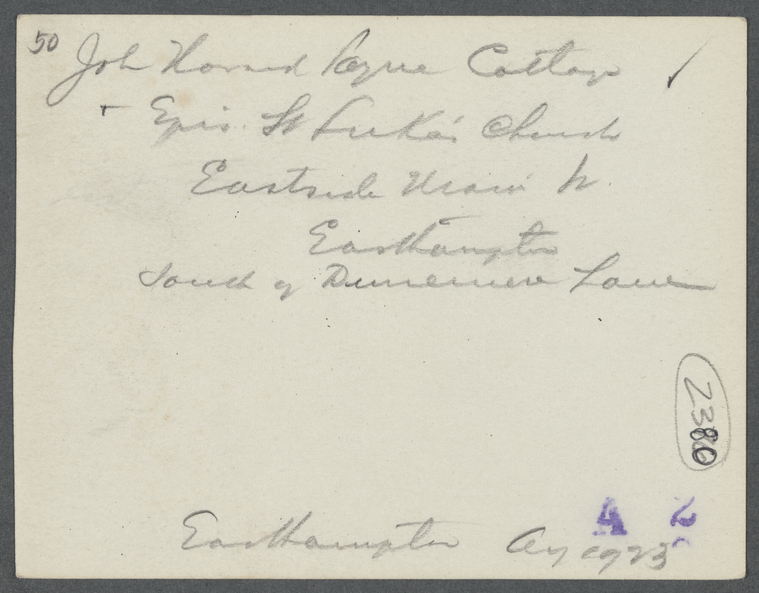 50 John Howard Payne Cottage ✓
+ Epis. St Luke's Church
Eastside Main St.
Easthampton
South of Dunemere Lane
2380
A 2
Easthampton Aug 1923